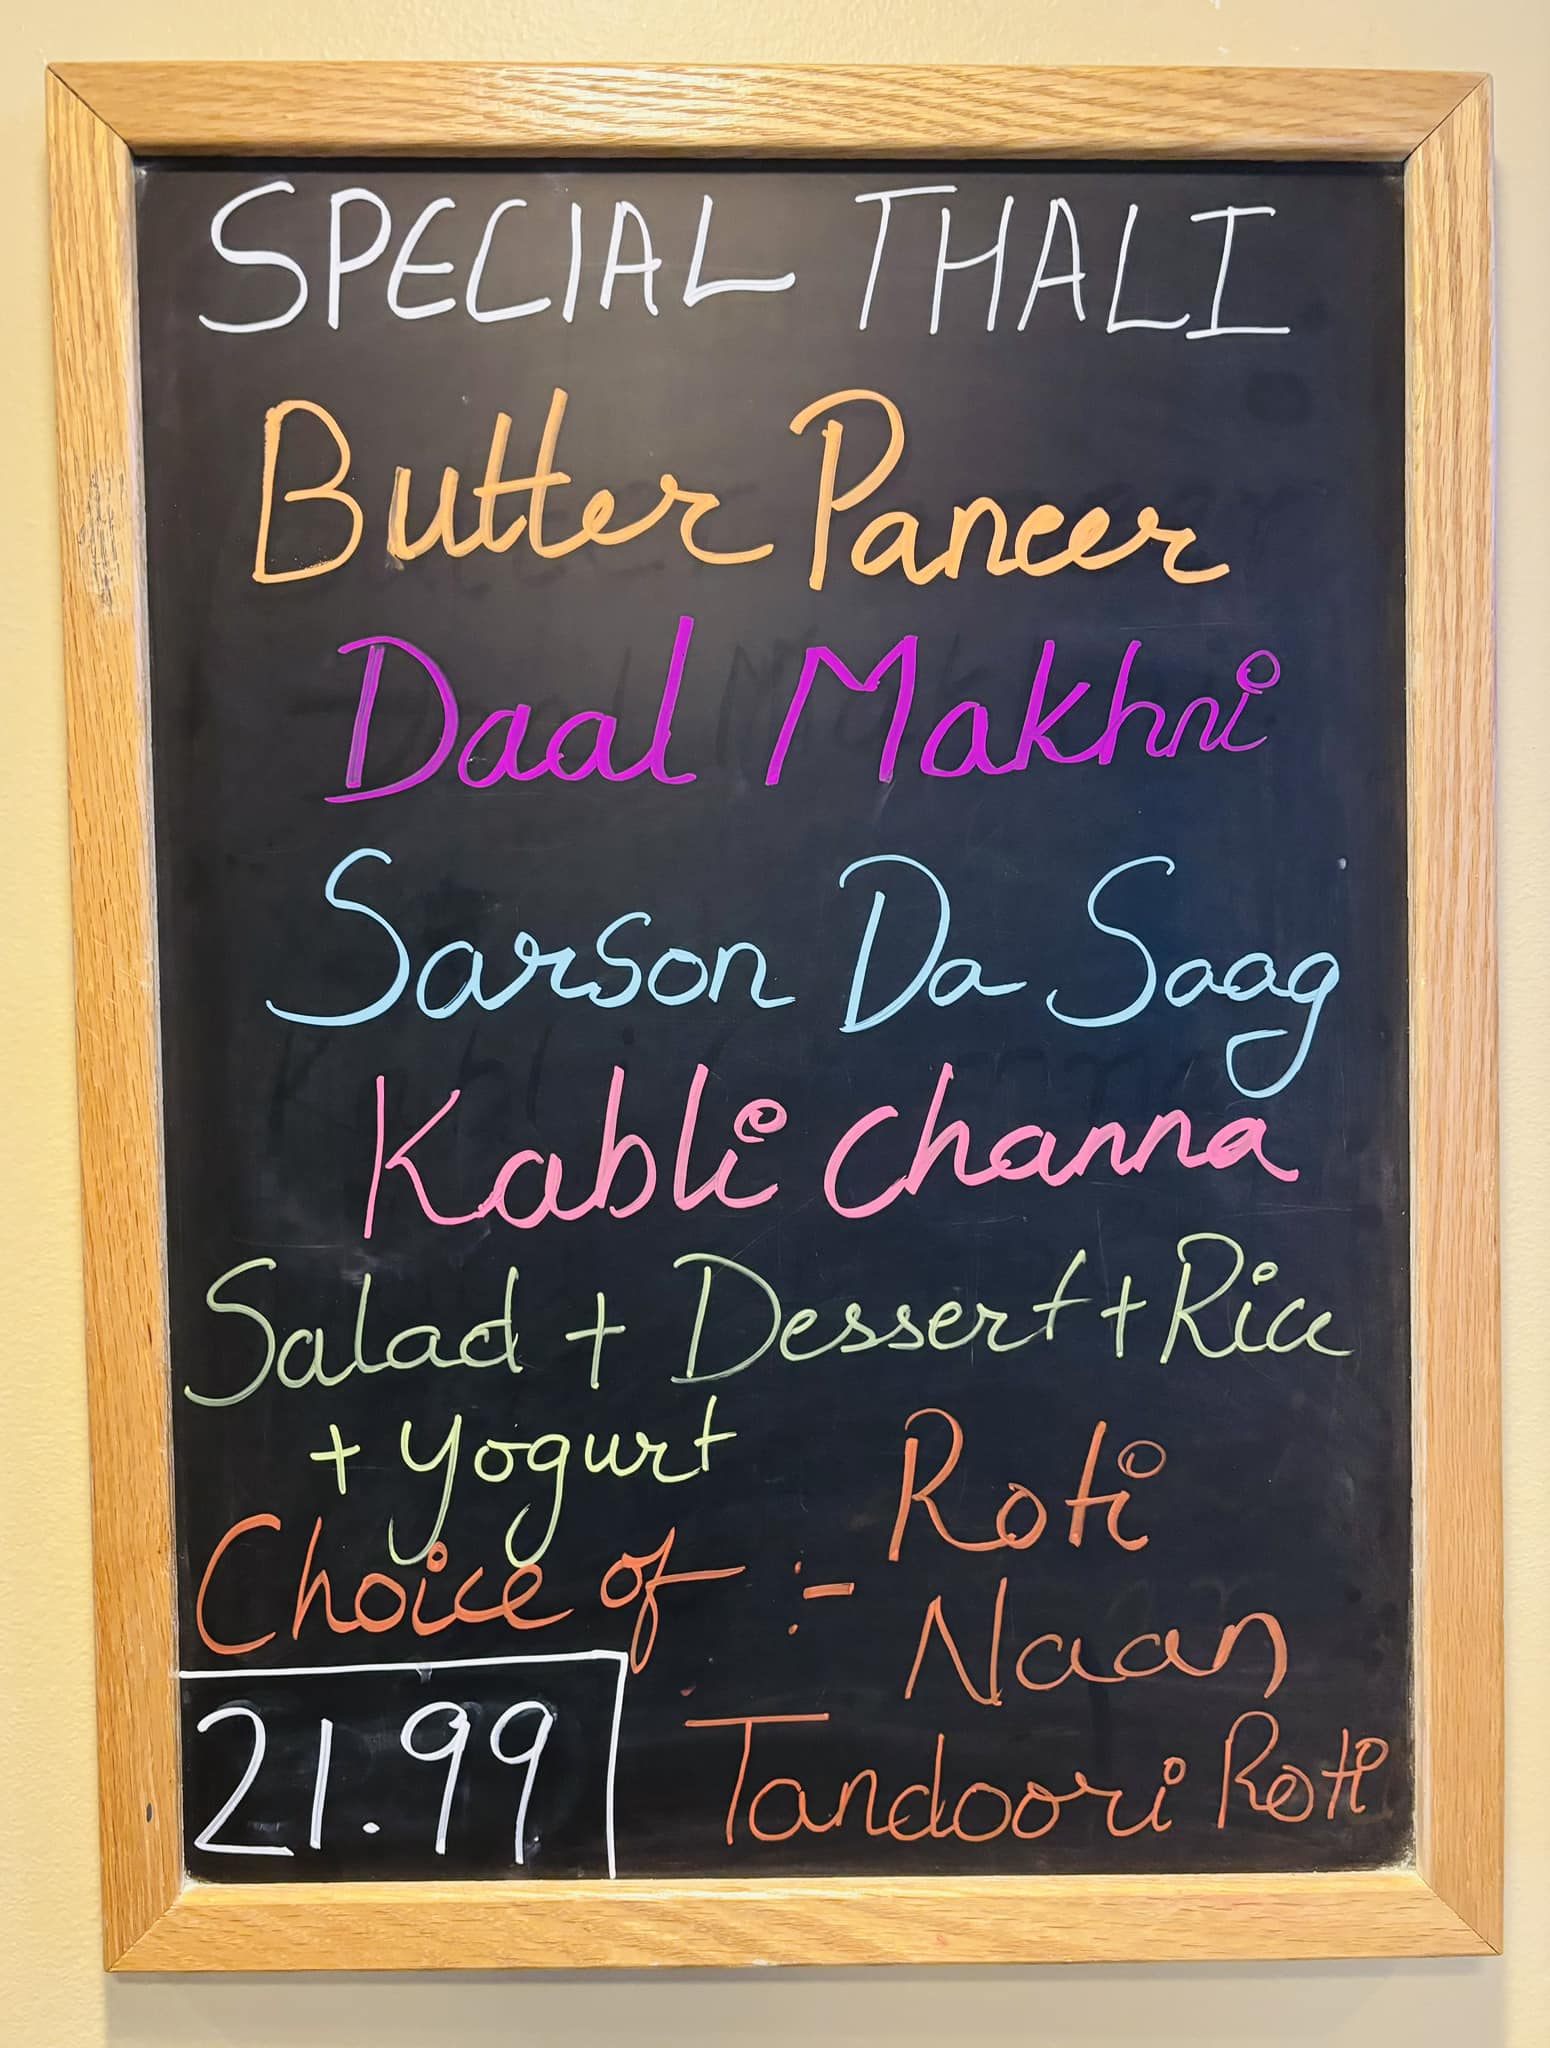 SPECIAL THALI
Butter Paneer
Daal Makhni
Sarson Da Saag
Kabli Channa
Salad + Dessert + Rice
+ Yogurt
Choice of :- Roti
Naan
Tandoori Roti
21.99